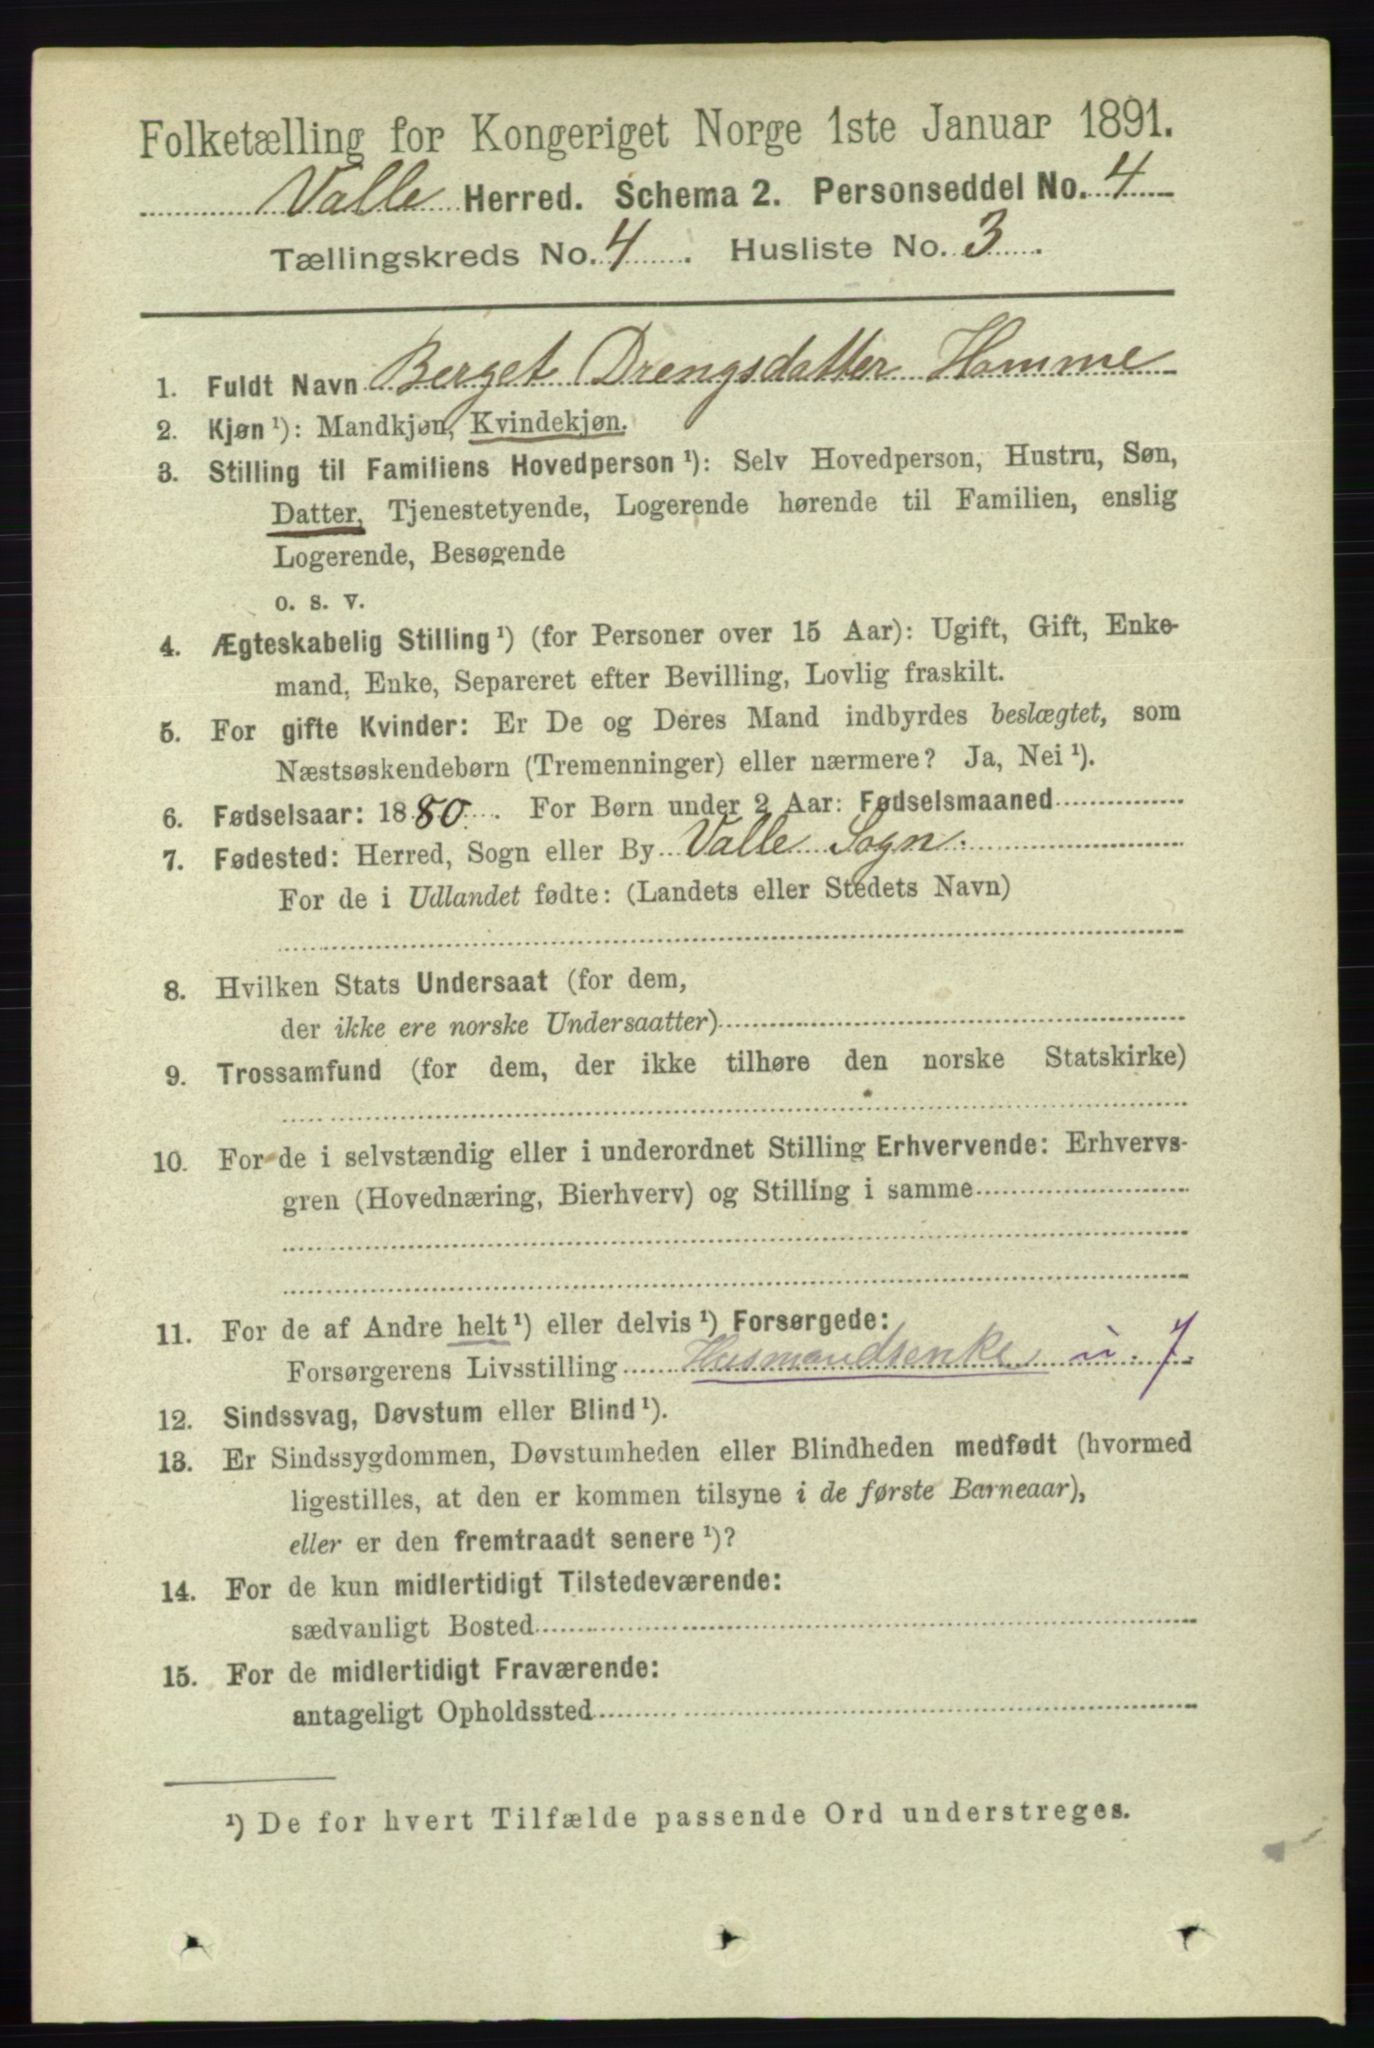 Folketælling for Kongeriget Norge 1ste Januar 1891.
Valle Herred. Schema 2. Personseddel No. 4
Tællingskreds No. 4. Husliste No. 3.
1. Fuldt Navn Berget Drengsdatter Homme
2. Kjøn ¹): Mandkjøn, Kvindekjøn.
3. Stilling til Familiens Hovedperson ¹): Selv Hovedperson, Hustru, Søn,
Datter, Tjenestetyende, Logerende hørende til Familien, enslig
Logerende, Besøgende
o. s. v.
4. Ægteskabelig Stilling ¹) (for Personer over 15 Aar): Ugift, Gift, Enke-
mand, Enke, Separeret efter Bevilling, Lovlig fraskilt.
5. For gifte Kvinder: Er De og Deres Mand indbyrdes beslægtet, som
Næstsøskendebørn (Tremenninger) eller nærmere? Ja, Nei ¹).
6. Fødselsaar: 1880. For Børn under 2 Aar: Fødselsmaaned
7. Fødested: Herred, Sogn eller By Valle Sogn.
For de i Udlandet fødte: (Landets eller Stedets Navn)
8. Hvilken Stats Undersaat (for dem,
der ikke ere norske Undersaatter)
9. Trossamfund (for dem, der ikke tilhøre den norske Statskirke)
10. For de i selvstændig eller i underordnet Stilling Erhvervende: Erhvervs-
gren (Hovednæring, Bierhverv) og Stilling i samme
11. For de af Andre helt ¹) eller delvis ¹) Forsørgede:
Forsørgerens Livsstilling Husmandsenke u. 7.
12. Sindssvag, Døvstum eller Blind ¹).
13. Er Sindssygdommen, Døvstumheden eller Blindheden medfødt (hvormed
ligestilles, at den er kommen tilsyne i de første Barneaar),
eller er den fremtraadt senere ¹)?
14. For de kun midlertidigt Tilstedeværende:
sædvanligt Bosted
15. For de midlertidigt Fraværende:
antageligt Opholdssted
¹) De for hvert Tilfælde passende Ord understreges.